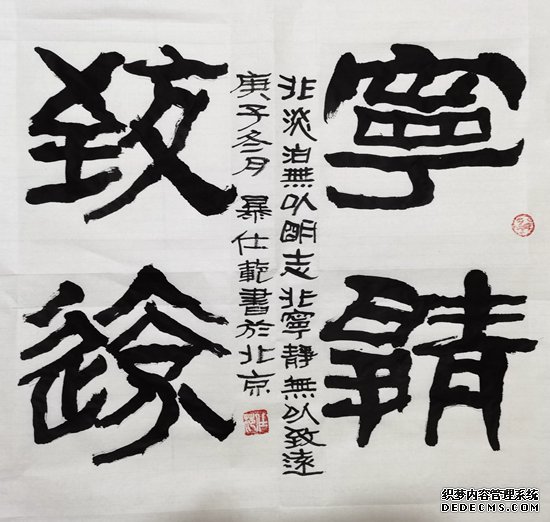 寧靜
致遠
非淡泊無以明志非寧靜無以致遠
庚子冬月 暴仕範書於北京
织梦内容管理系统
DEDECMS.COM